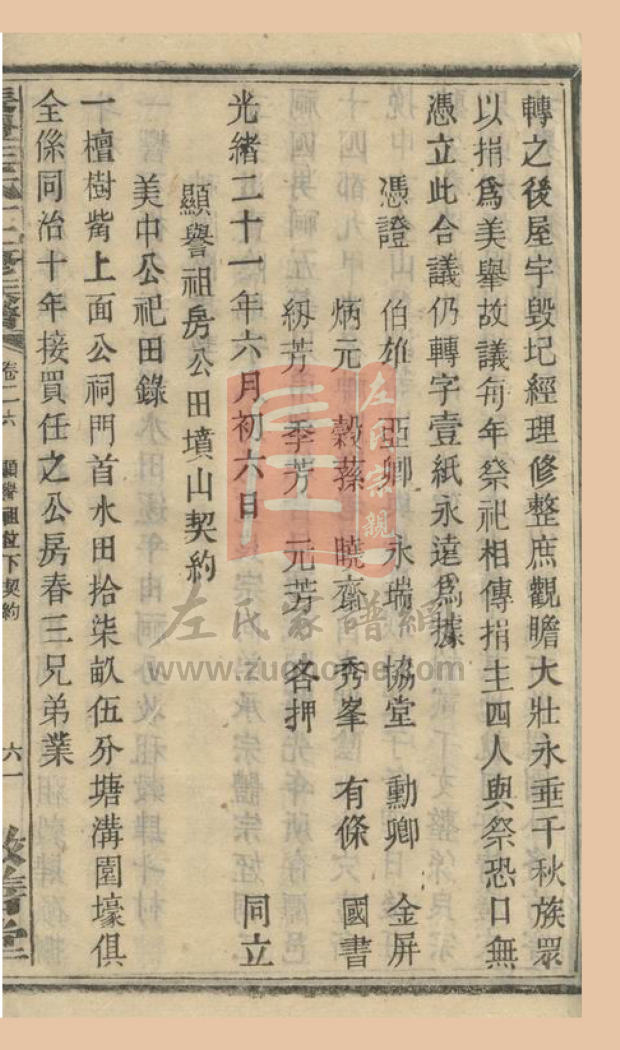 轉之後屋宇毀圮經理修整庶觀瞻大壯永垂千秋族眾
以捐爲美舉故議每年祭祀相傳捐主四人與祭恐口無
憑立此合議仍轉字壹紙永遠爲據
憑證 伯雄 亞卿 永瑞 協堂 勳卿 金屏
炳元 穀蓀 曉齋 秀峯 有條 國書
紉芳 季芳 元芳 各押
光緒二十一年六月初六日 同立
顯譽祖房公田墳山契約
美中公祀田錄
一檀樹嘴上面公祠門首水田拾柒畝伍分塘溝園壕俱
全係同治十年接買任之公房春三兄弟業
卷二六 顯譽祖位下契約 六一
敘倫堂
左氏宗親
左氏家譜網
www.zuohome.com